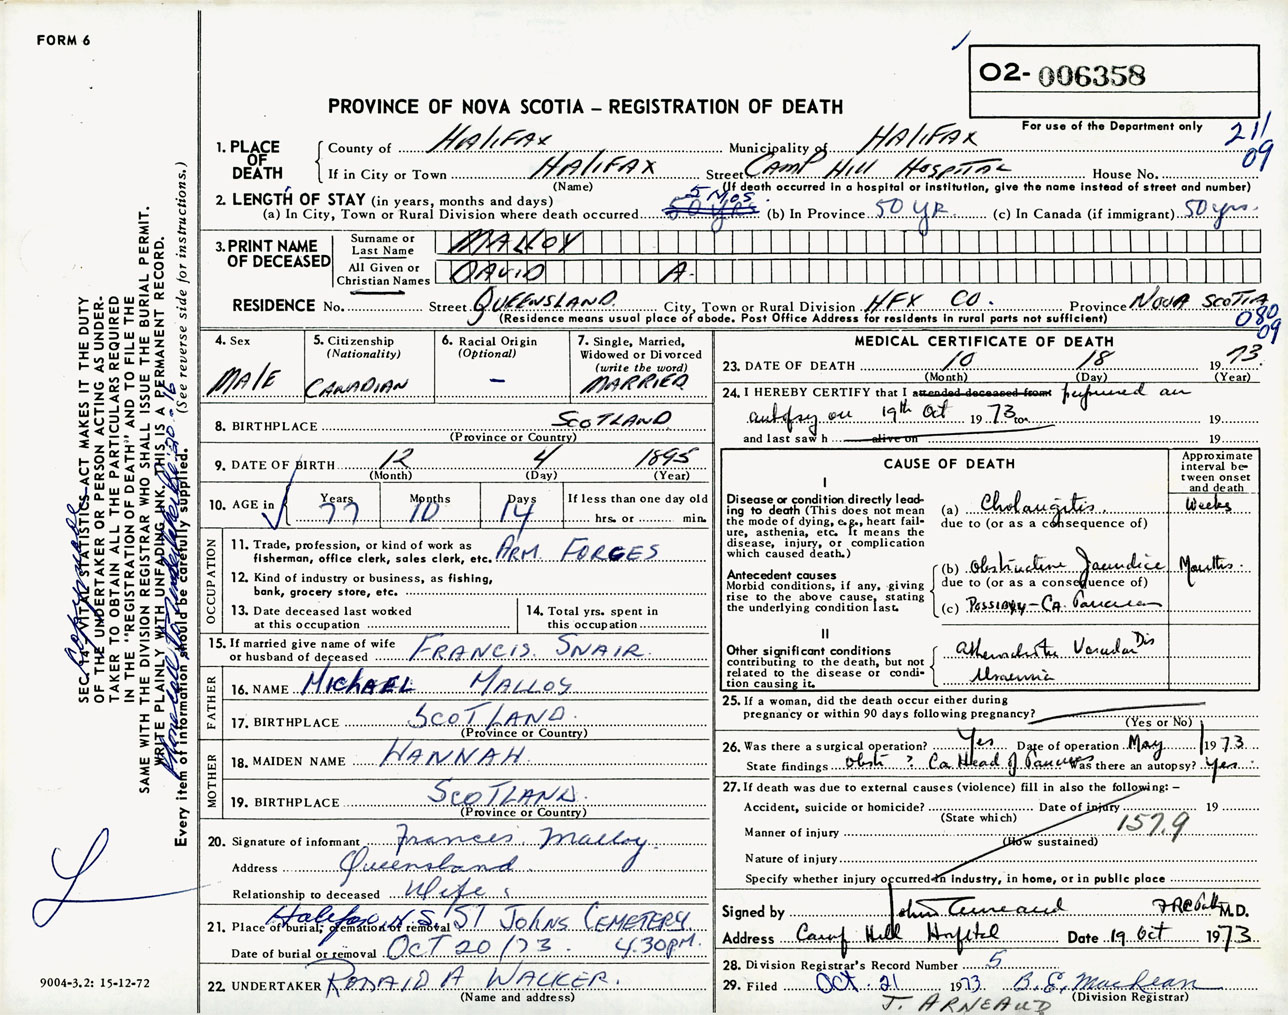 FORM 6
O2- 006358
PROVINCE OF NOVA SCOTIA – REGISTRATION OF DEATH
For use of the Department only
211
09
1. PLACE OF DEATH
County of HALIFAX Municipality of HALIFAX
If in City or Town HALIFAX Street CAMP HILL HOSPITAL House No.
(Name) (If death occurred in a hospital or institution, give the name instead of street and number)
2. LENGTH OF STAY (in years, months and days) 5 Mos.
(a) In City, Town or Rural Division where death occurred 50 yrs (b) In Province 50 YR. (c) In Canada (if immigrant) 50 yrs.
3. PRINT NAME OF DECEASED
Surname or Last Name MALLOY
All Given or Christian Names DAVID A.
RESIDENCE No. Street QUEENSLAND City, Town or Rural Division HFX CO. Province NOVA SCOTIA
(Residence means usual place of abode. Post Office Address for residents in rural parts not sufficient)
080
09
4. Sex
MALE
5. Citizenship
(Nationality)
CANADIAN
6. Racial Origin
(Optional)
–
7. Single, Married, Widowed or Divorced
(write the word)
MARRIED
8. BIRTHPLACE SCOTLAND
(Province or Country)
9. DATE OF BIRTH 12 4 1895
(Month) (Day) (Year)
10. AGE in
Years Months Days If less than one day old
77 10 14 hrs. or min.
OCCUPATION
11. Trade, profession, or kind of work as
fisherman, office clerk, sales clerk, etc. ARM. FORCES
12. Kind of industry or business, as fishing,
bank, grocery store, etc.
13. Date deceased last worked
at this occupation
14. Total yrs. spent in
this occupation
15. If married give name of wife
or husband of deceased FRANCIS SNAIR.
FATHER
16. NAME MICHAEL MALLOY
17. BIRTHPLACE SCOTLAND.
(Province or Country)
MOTHER
18. MAIDEN NAME HANNAH.
19. BIRTHPLACE SCOTLAND.
(Province or Country)
20. Signature of informant Frances Malloy
Address Queensland
Relationship to deceased Wife
21. Place of burial, cremation or removal Halifax N.S. ST JOHNS CEMETERY
Date of burial or removal OCT 20/73. 4.30PM.
22. UNDERTAKER RONALD A WALKER.
(Name and address)
MEDICAL CERTIFICATE OF DEATH
23. DATE OF DEATH 10 18 1973.
(Month) (Day) (Year)
24. I HEREBY CERTIFY that I attended deceased from performed an
autopsy on 19th Oct 1973 to 19
and last saw h alive on 19
CAUSE OF DEATH
Approximate interval between onset and death
I
Disease or condition directly leading to death (This does not mean the mode of dying, e.g., heart failure, asthenia, etc. It means the disease, injury, or complication which caused death.)
(a) Cholangitis. Weeks
due to (or as a consequence of)
Antecedent causes
Morbid conditions, if any, giving rise to the above cause, stating the underlying condition last.
(b) Obstructive Jaundice Months.
due to (or as a consequence of)
(c) POSSIBLY – CA. Pancreas
II
Other significant conditions contributing to the death, but not related to the disease or condition causing it.
Vascular Dis
Uraemia
25. If a woman, did the death occur either during
pregnancy or within 90 days following pregnancy?
(Yes or No)
26. Was there a surgical operation? Yes Date of operation May 1973
State findings obst ? Ca Head of Pancreas Was there an autopsy? Yes
27. If death was due to external causes (violence) fill in also the following: –
Accident, suicide or homicide? Date of injury 19
(State which)
157.9
Manner of injury
(How sustained)
Nature of injury
Specify whether injury occurred in industry, in home, or in public place
Signed by M.D.
Address Camp Hill Hospital Date 19 Oct 1973
28. Division Registrar's Record Number 5
29. Filed Oct. 21 1973 B.E. MacLean
(Division Registrar)
J. ARNEAUD
SEC. 4, VITAL STATISTICS ACT MAKES IT THE DUTY
OF THE UNDERTAKER OR PERSON ACTING AS UNDER-
TAKER TO OBTAIN ALL THE PARTICULARS REQUIRED
IN THE "REGISTRATION OF DEATH" AND TO FILE THE
SAME WITH THE DIVISION REGISTRAR WHO SHALL ISSUE THE BURIAL PERMIT.
WRITE PLAINLY WITH UNFADING INK. THIS IS A PERMANENT RECORD.
Every item of information should be carefully supplied. (See reverse side for instructions.)
9004-3.2: 15-12-72